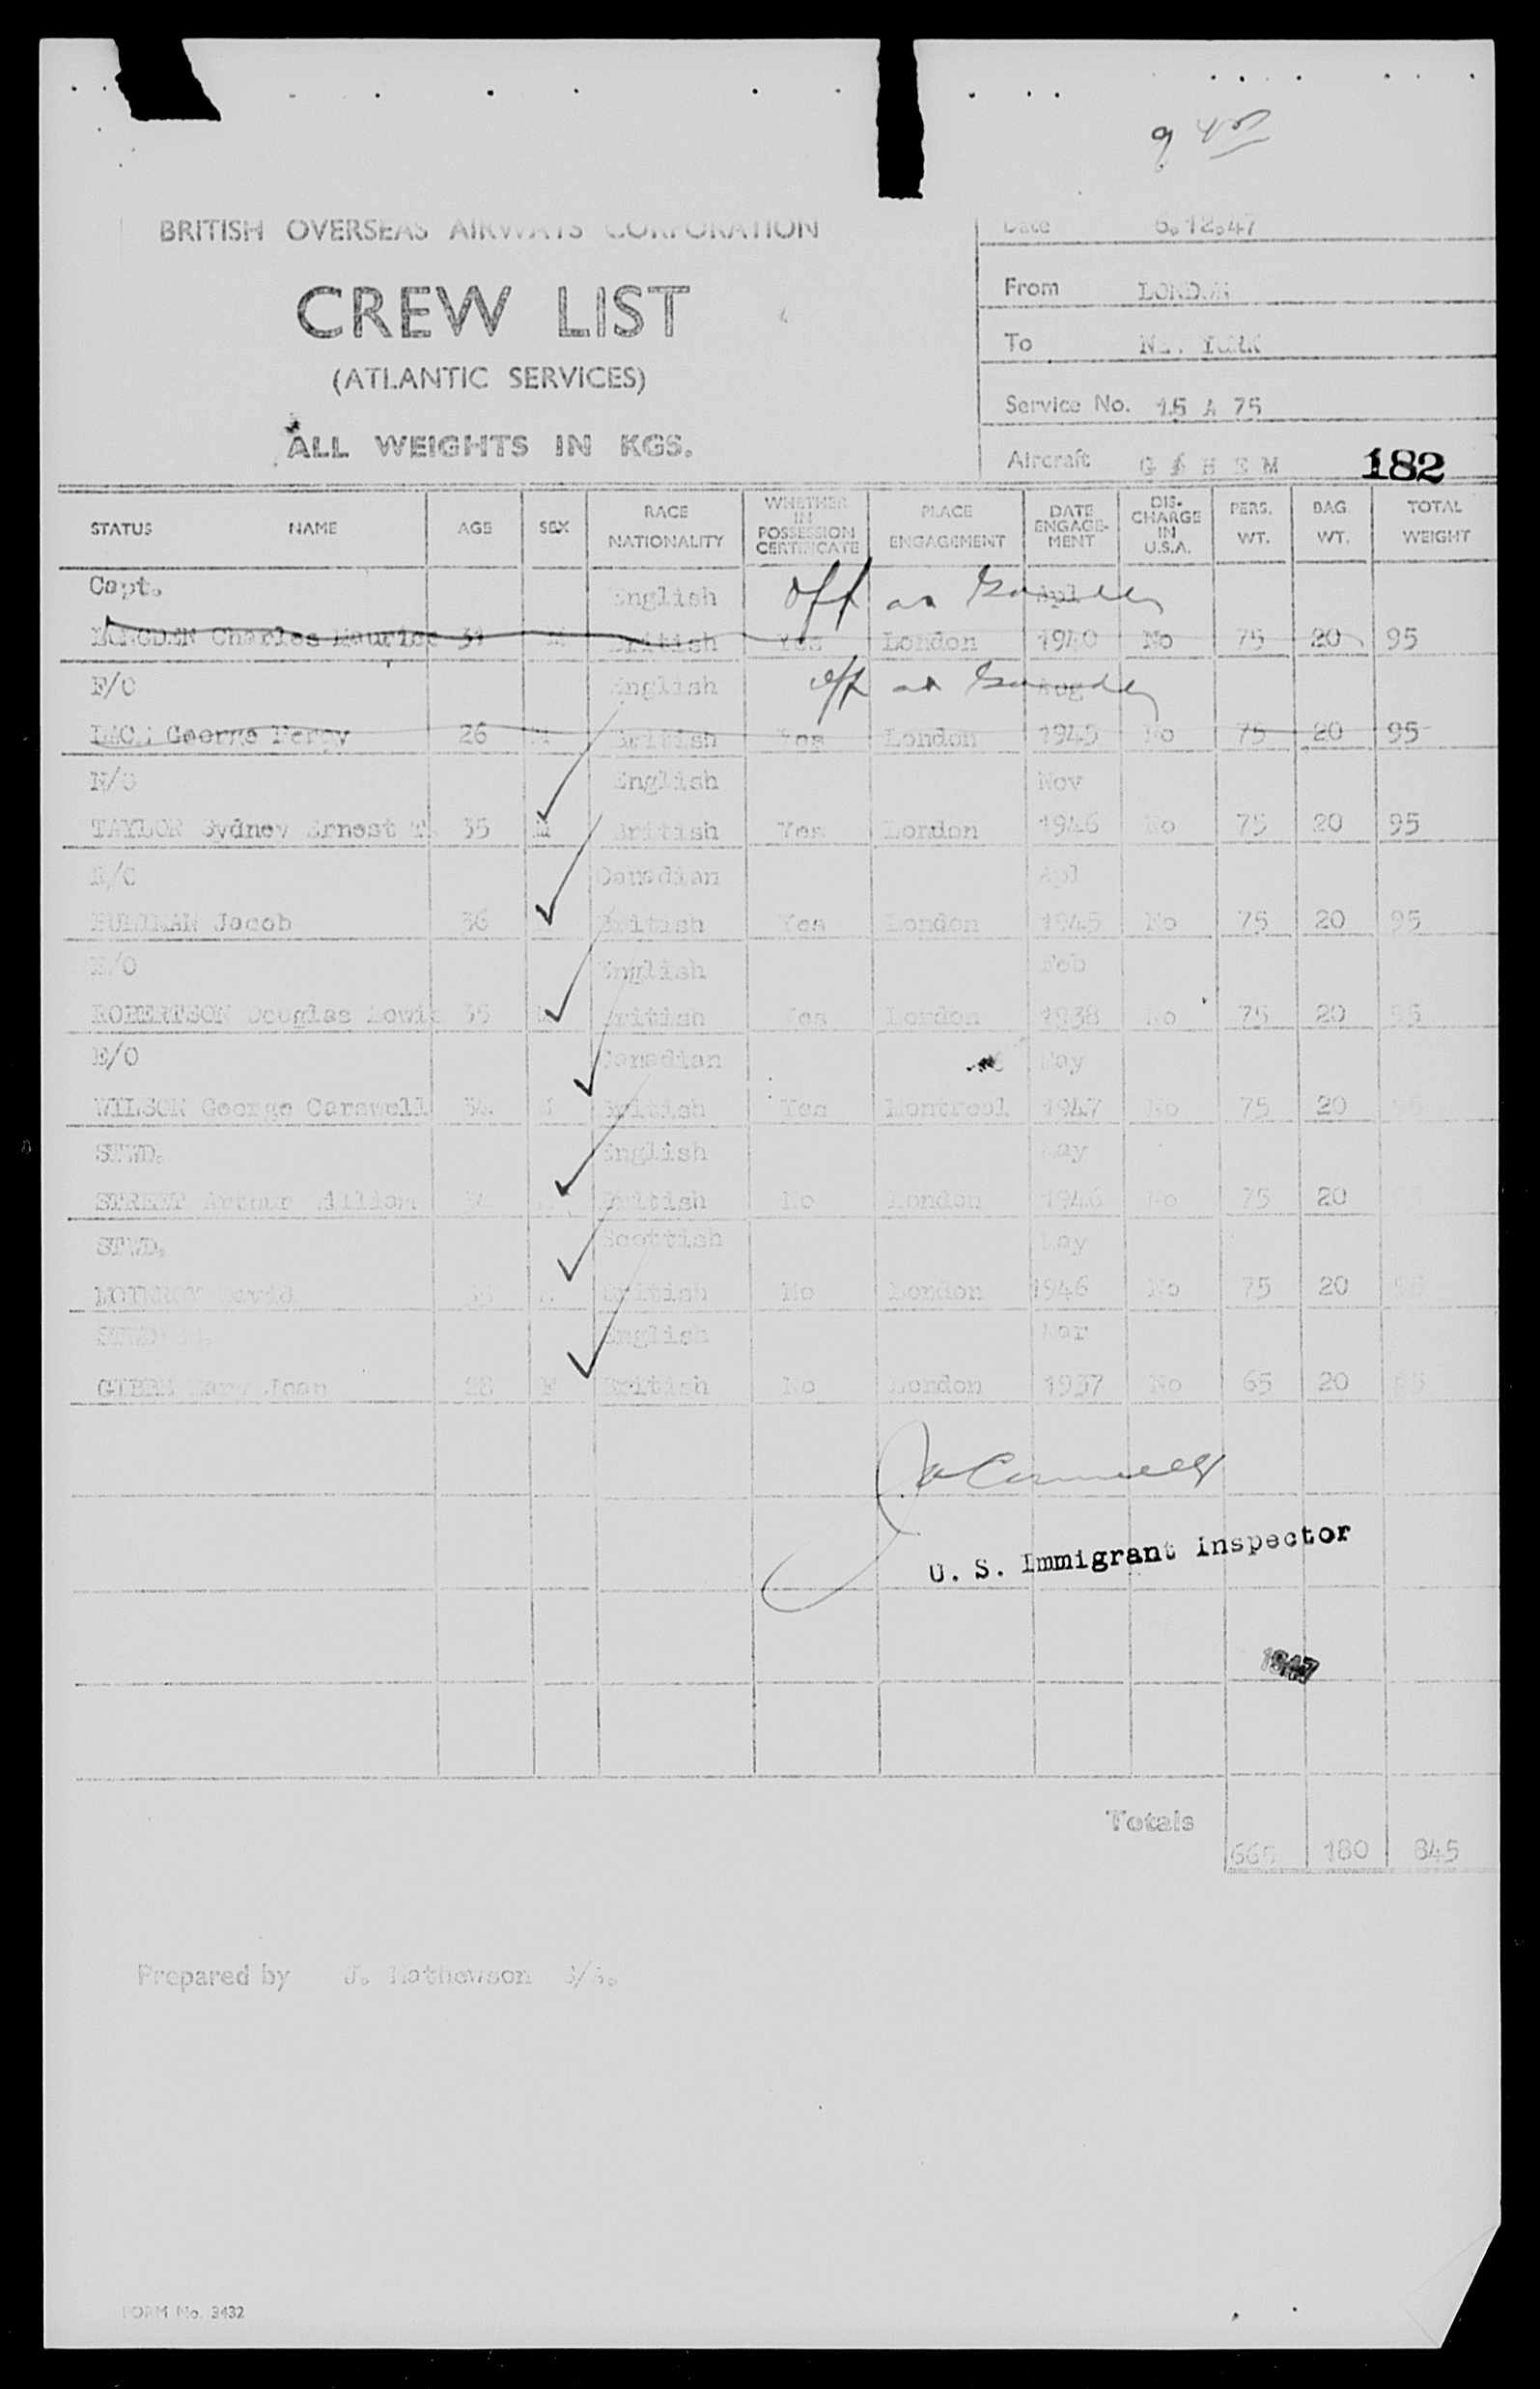 BRITISH OVERSEAS AIRWAYS CORPORATION
Date 6.12.47
CREW LIST
From LONDON
(ATLANTIC SERVICES)
To NEW YORK
ALL WEIGHTS IN KGS.
Service No. 15 A 75
Aircraft G A H E M 182
STATUS NAME AGE SEX RACE NATIONALITY WHETHER IN POSSESSION CERTIFICATE PLACE ENGAGEMENT DATE ENGAGE-MENT DIS-CHARGE IN U.S.A. PERS. WT. BAG WT. TOTAL WEIGHT
Capt. English off at Gander Apl
Charles Maurice M British Yes London 1940 No 75 20 95
F/O English off at Gander Aug
George Percy 26 M British Yes London 1945 No 75 20 95
English Nov
TAYLOR Sydney Ernest T. 35 M British Yes London 1946 No 75 20 95
R/O Canadian Apl
Jacob 36 British Yes London 1945 No 75 20 95
English Feb
ROBERTSON Douglas 35 British Yes London 1938 No 75 20 95
E/O Canadian May
WILSON George Carswell 34 M British Yes Montreal 1947 No 75 20
STWD. English May
STREET Arthur William 34 British No London 1946 No 75 20
STWD. Scottish May
David British No London 1946 No 75 20
English Mar
GIBBS Mary Joan 28 F British No London 1937 No 65 20
U. S. Immigrant Inspector
1947
Totals 665 180 845
Prepared by J. Mathewson
FORM No. 3432